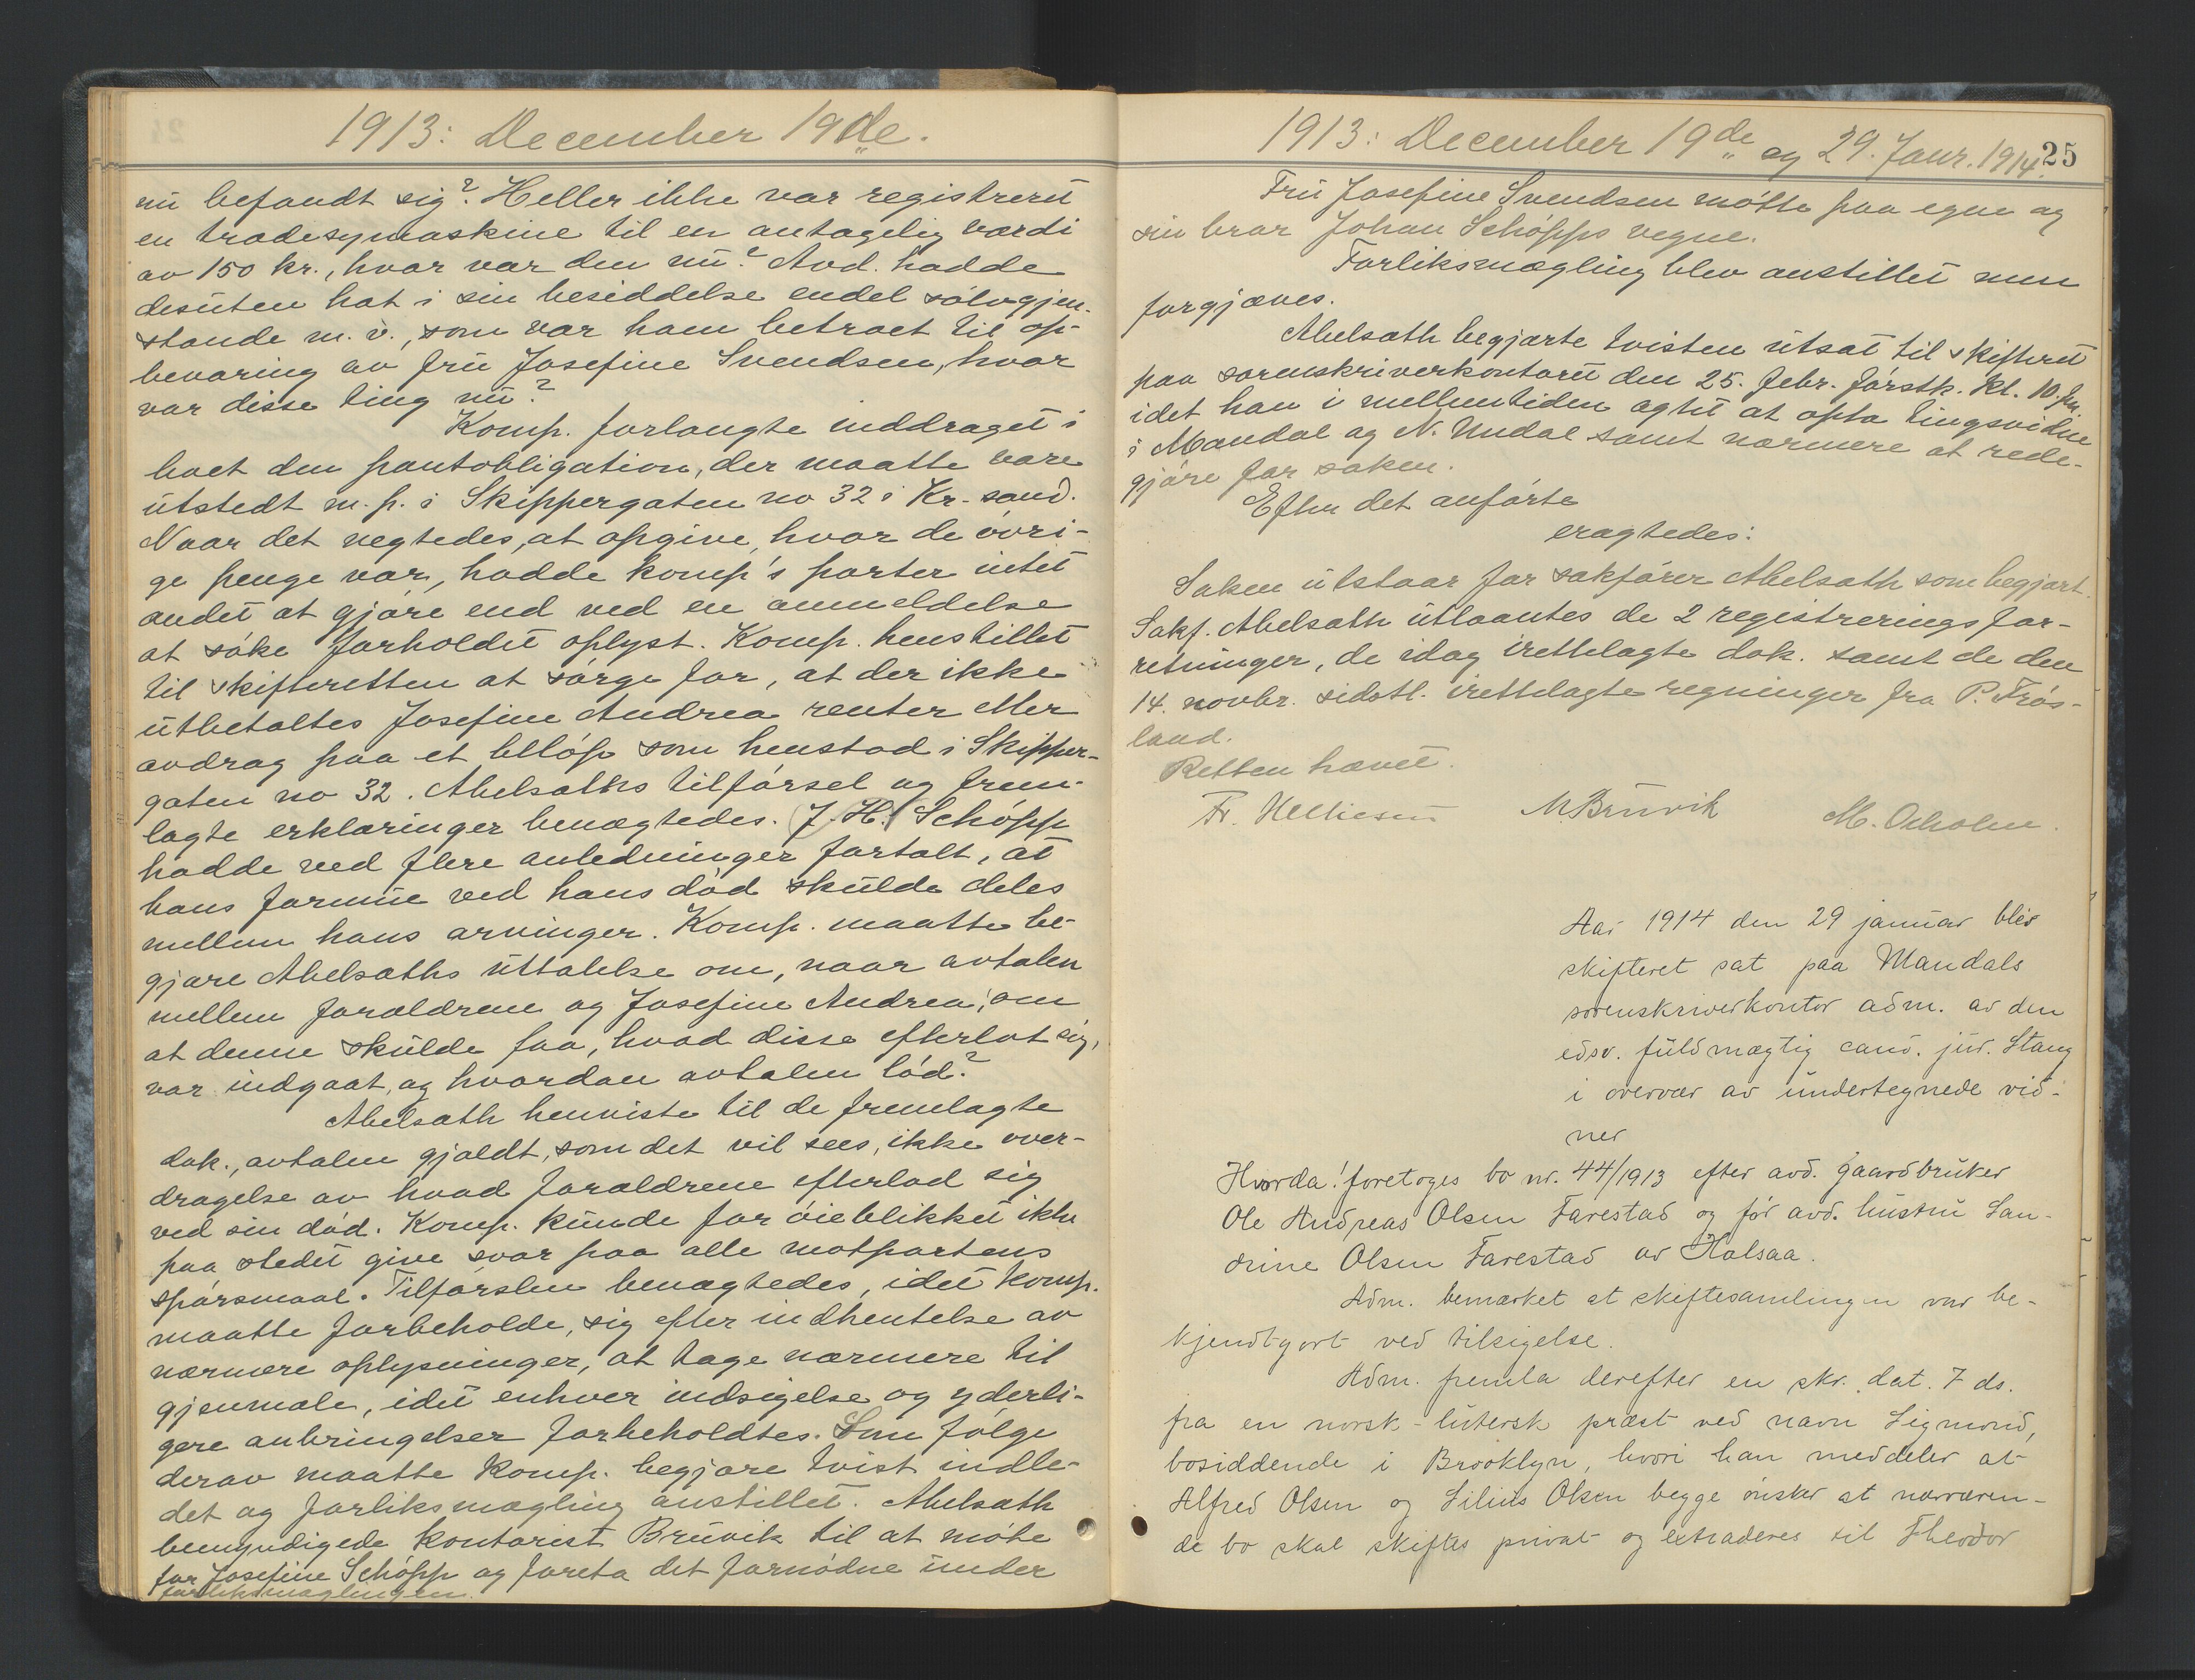 1913: December 19de.
nu befandt sig? Heller ikke var registreret
en trædesymaskine til en antagelig værdi
av 150 kr., hvor var den nu? Avd. hadde
desuten hat i sin besiddelse endel sølvgjen-
stande m. v., som var ham betroet til op-
bevaring av fru Josefine Svendsen, hvor
var disse ting nu?
Komp. forlangte inddraget i
boet den pantobligation, der maatte være
utstedt m. p. i Skippergaten no 32 i Kr.sand.
Naar det negtedes, at opgive, hvor de øvri-
ge penge var, hadde komp's parter intet
andet at gjøre end ved en anmeldelse
at søke forholdet oplyst. Komp. henstillet
til skifteretten at sørge for, at der ikke
utbetaltes Josefine Andrea renter eller
avdrag paa et beløp som henstod i Skipper-
gaten no 32. Abelsøths tilførsel og frem-
lagte erklæringer benægtedes. J. H. Schøpp
hadde ved flere anledninger fortalt, at
hans formue ved hans død skulde deles
mellem hans arvinger. Komp. maatte be-
gjære Abelsøths uttalelse om, naar avtalen
mellem forældrene og Josefine Andrea, om
at denne skulde faa, hvad disse efterlot sig,
var indgaat, og hvordan avtalen lød?
Abelsøth henviste til de fremlagte
dok., avtalen gjaldt, som det vil sees, ikke over-
dragelse av hvad forældrene efterlod sig
ved sin død. Komp. kunde for øieblikket ikke
paa stedet give svar paa alle motpartens
spørsmaal. Tilførslen benægtedes, idet komp.
maatte forbeholde, sig efter indhentelse av
nærmere oplysninger, at tage nærmere til
gjenmæle, idet enhver indsigelse og yderli-
gere anbringelser forbeholdtes. Som følge
derav maatte komp. begjære tvist indle-
det og forliksmægling anstillet. Abelsøth
bemyndigede kontorist Bruvik til at møte
for Josefine Schøpp og foreta det fornødne under
forliksmæglingen.
1913: December 19de og 29. Janr. 1914. 25
Fru Josefine Svendsen møtte paa egne og
sin bror Johan Schøpps vegne.
Forliksmægling blev anstillet men
forgjæves.
Abelsøth begjærte tvisten utsat til skifteret
paa sorenskriverkontoret den 25. febr. førstk. kl. 10. fm.
idet han i mellemtiden agtet at opta tingsvidne
i Mandal og N. Undal samt nærmere at rede-
gjøre for saken.
Efter det anførte
eragtedes:
Saken utstaar for sakfører Abelsøth som begjært.
Sakf. Abelsøth utlaantes de 2 registreringsfor-
retninger, de idag irettelagte dok. samt de den
14. novbr. sidstl. irettelagte regninger fra P. Frøs-
land.
Retten hævet.
Fr. M. Bruvik M.
Aar 1914 den 29 januar blev
skifteret sat paa Mandals
sorenskriverkontor adm. av den
edsv. fuldmægtig cand. jur. Stang
i overvær av undertegnede vid-
ner
Hvorda! foretoges bo nr. 44/1913 efter avd. gaardbruker
Ole Andreas Olsen Farestad og før avd. hustru San-
drine Olsen Farestad av Halsaa.
Adm. bemærket at skiftesamlingen var be-
kjendtgjort ved tilsigelse.
Adm. fremla derefter en skr. dat. 7 ds.
fra en norsk-lutersk præst ved navn Sigmond,
bosiddende i Brooklyn, hvori han meddeler at
Alfred Olsen og Silius Olsen begge ønsker at nærværen-
de bo skal skiftes privat og extraderes til Theodor